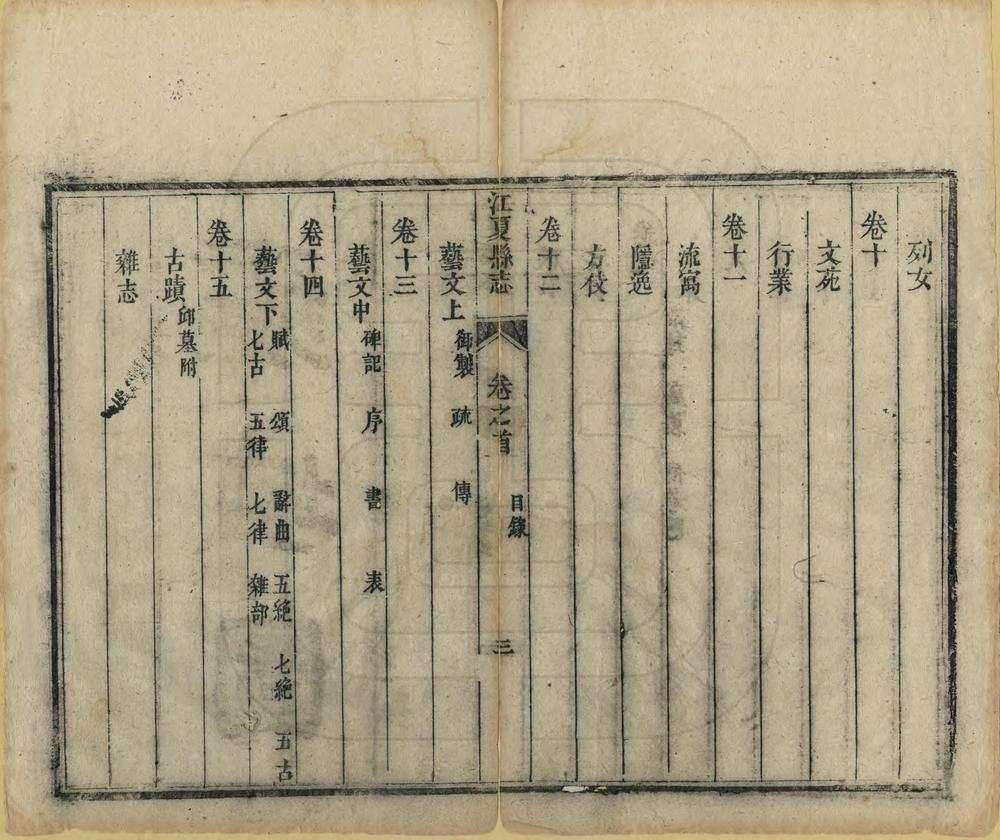 列女
卷十
文苑
行業
卷十一
流寓
隱逸
方伎
卷十二
江夏縣志 卷之首 目錄 三
藝文上 御製 疏 傳
卷十三
藝文中 碑記 序 書 表
卷十四
藝文下 賦 頌 辭曲 五絕 七絕 五古
七古 五律 七律 雜部
卷十五
古蹟 邱墓附
雜志